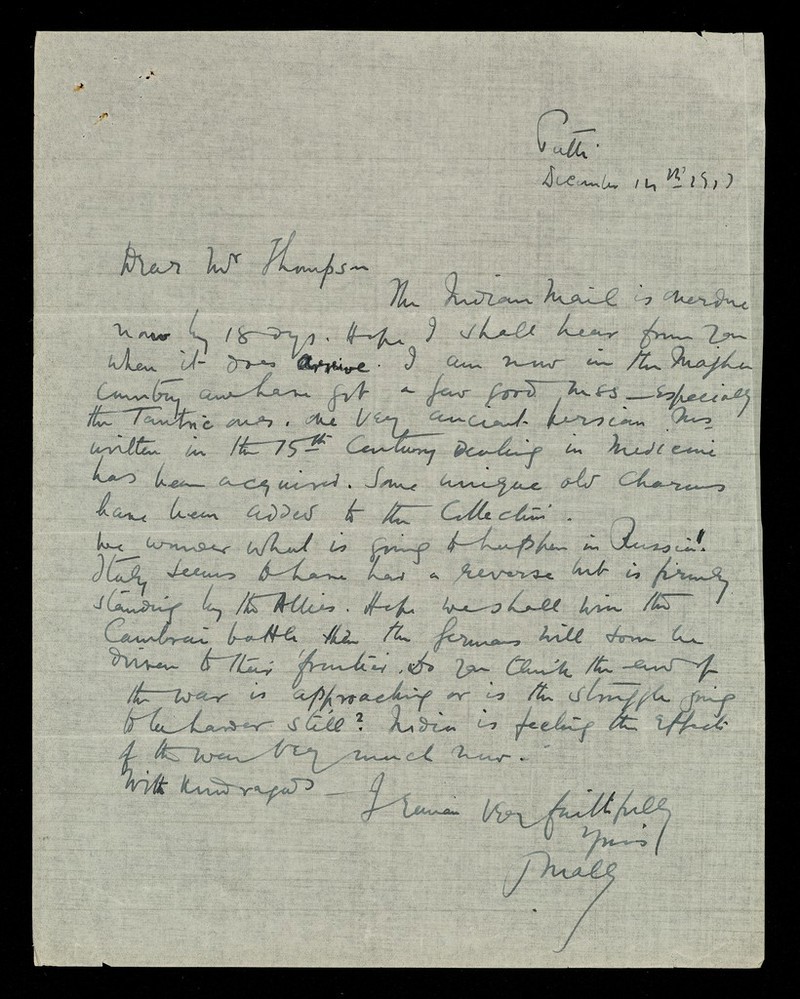 Patti
December 14th 1917
Dear Mr Thompson
The Indian Mail is overdue
now by 18 dys. Hope I shall hear from you
when it does arrive. I am now in the Majha
country and have got a few good Mss – especially
the Tantric ones. One very ancient persian Ms
written in the 15th Century dealing in Medicine
has been acquired. Some unique old Charms
have been added to the Collection.
We wonder what is going to happen in Russia!
Italy seems to have had a reverse but is firmly
standing by the Allies. Hope we shall win the
Cambrai battle then the Germans will soon be
driven to their frontier. Do you think the end of
the war is approaching or is the struggle going
to be harder still? India is feeling the effects
of the war very much now.
With kind regards – I remain very faithfully
Yours